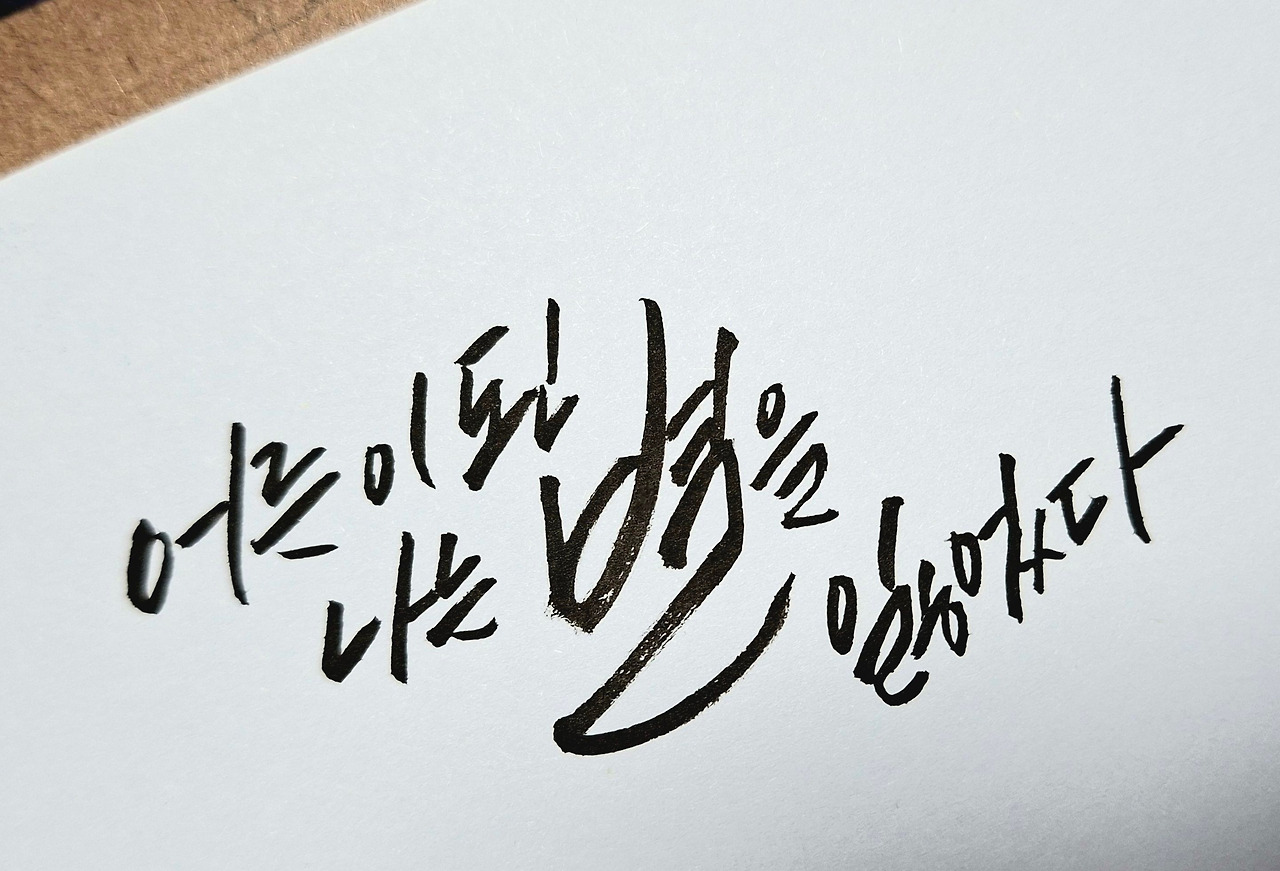 어른이 된
나는 별을
잃었다